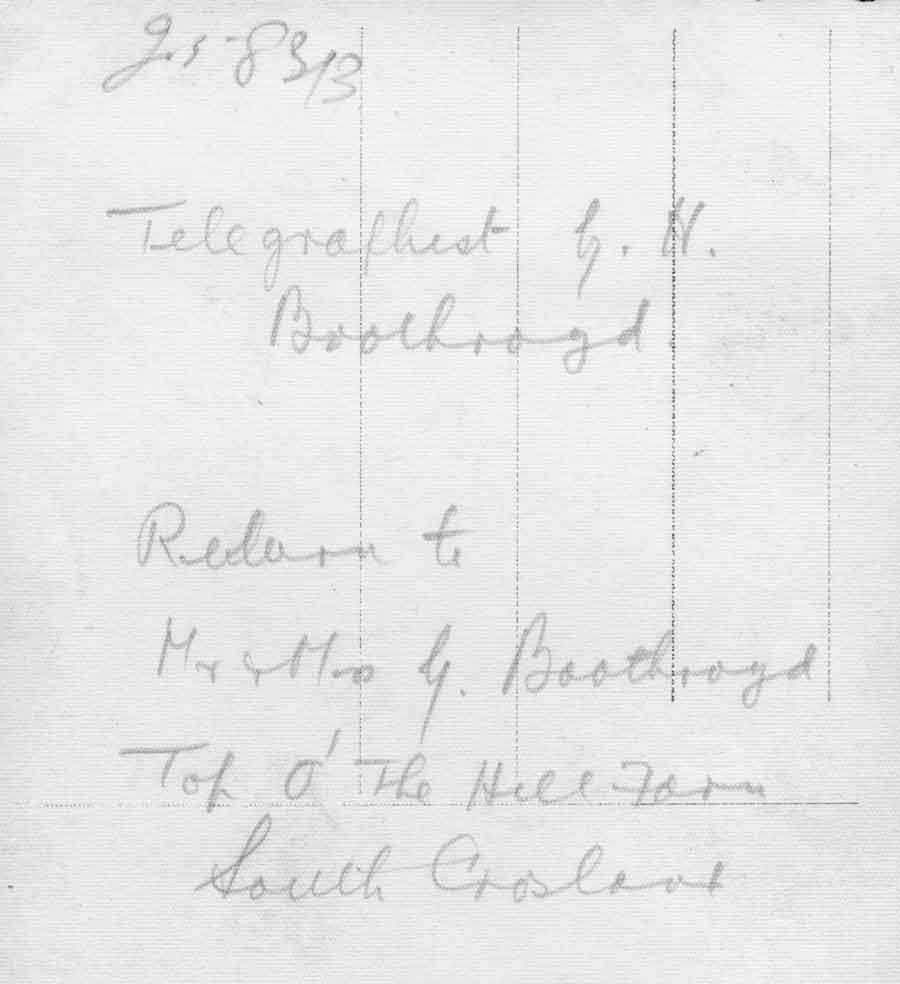 Telegraphest G. H.
Boothroyd.
Return to
Mr & Mrs G. Boothroyd
Top O' The Hill Farm
South Crosland